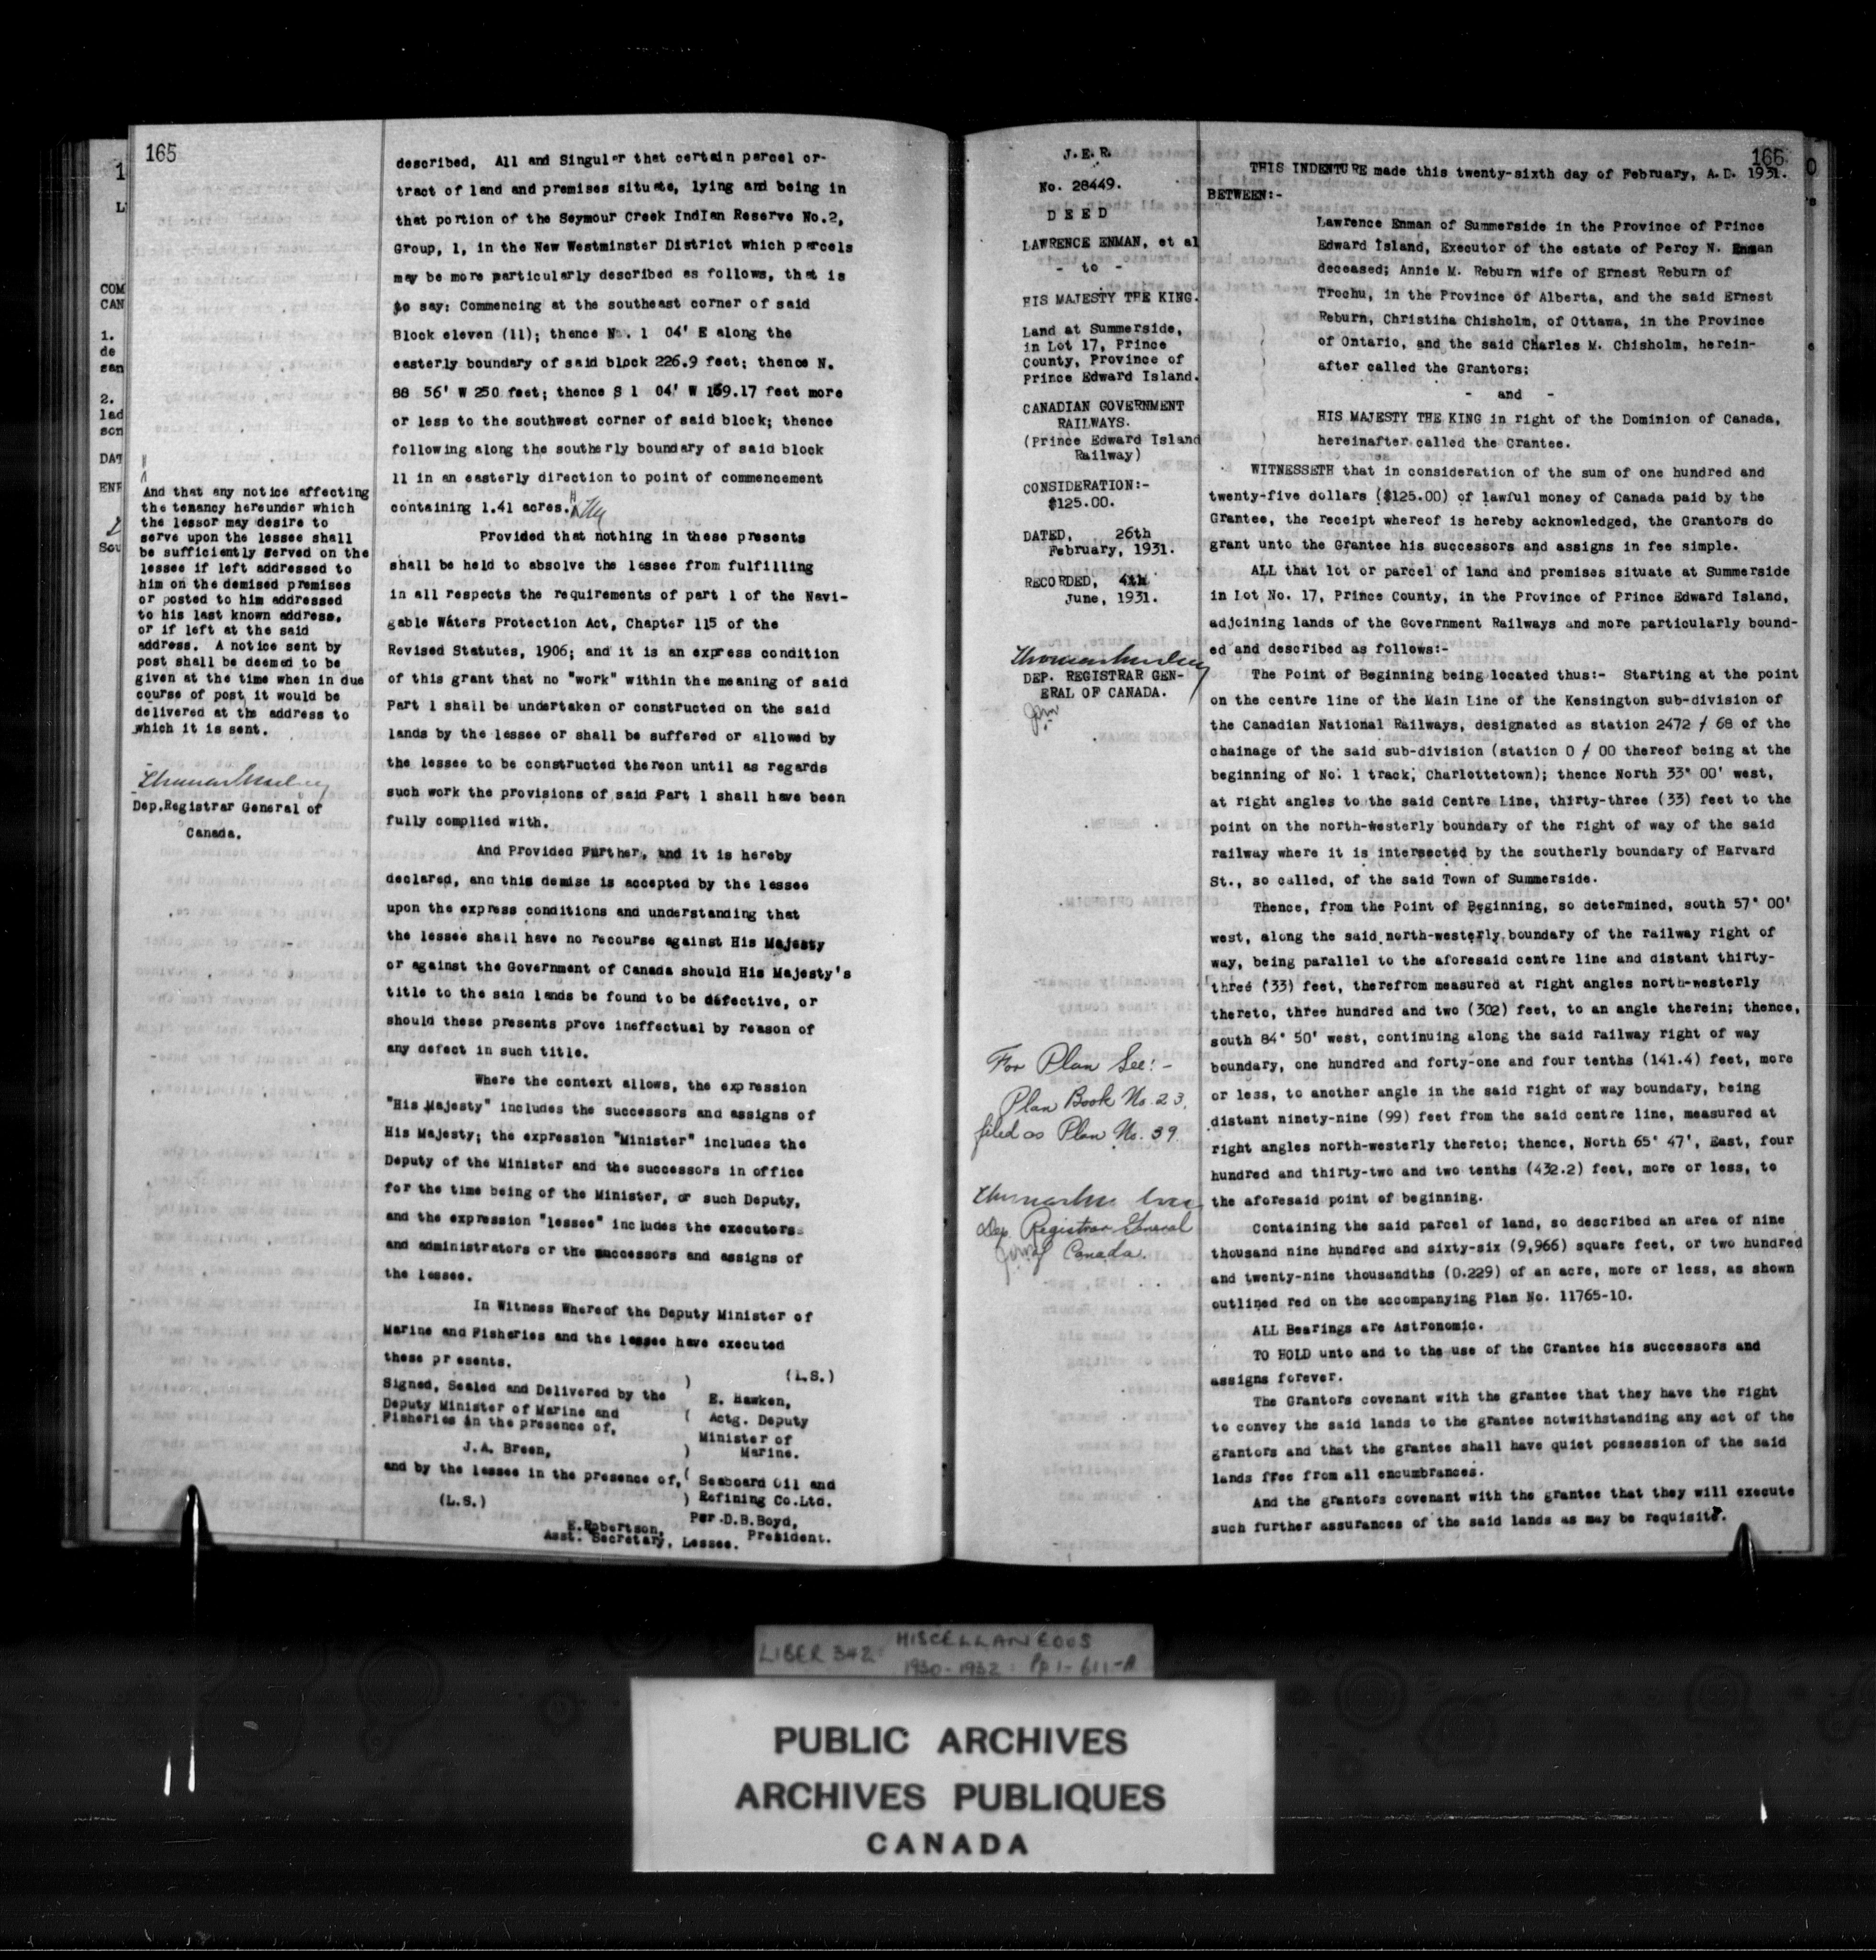 165
described, All and Singular that certain parcel or-
tract of land and premises situate, lying and being in
that portion of the Seymour Creek Indian Reserve No.2,
Group, 1, in the New Westminster District which parcels
may be more particularly described as follows, that is
to say: Commencing at the southeast corner of said
Block eleven (11); thence No. 1 04' E along the
easterly boundary of said block 226.9 feet; thence N.
88 56' W 250 feet; thence S 1 04' W 169.17 feet more
or less to the southwest corner of said block; thence
following along the southerly boundary of said block
11 in an easterly direction to point of commencement
containing 1.41 acres.
Provided that nothing in these presents
shall be held to absolve the lessee from fulfilling
in all respects the requirements of part 1 of the Navi-
gable Waters Protection Act, Chapter 115 of the
Revised Statutes, 1906; and it is an express condition
of this grant that no "work" within the meaning of said
Part 1 shall be undertaken or constructed on the said
lands by the lessee or shall be suffered or allowed by
the lessee to be constructed thereon until as regards
such work the provisions of said Part 1 shall have been
fully complied with.
And Provided Further, and it is hereby
declared, and this demise is accepted by the lessee
upon the express conditions and understanding that
the lessee shall have no recourse against His Majesty
or against the Government of Canada should His Majesty's
title to the said lands be found to be defective, or
should these presents prove ineffectual by reason of
any defect in such title.
Where the context allows, the expression
"His Majesty" includes the successors and assigns of
His Majesty; the expression "Minister" includes the
Deputy of the Minister and the successors in office
for the time being of the Minister, or such Deputy,
and the expression "lessee" includes the executors
and administrators or the successors and assigns of
the lessee.
In Witness Whereof the Deputy Minister of
Marine and Fisheries and the lessee have executed
these presents.
(L.S.)
Signed, Sealed and Delivered by the
Deputy Minister of Marine and
Fisheries in the presence of,
J.A. Breen,
and by the lessee in the presence of,
(L.S.)
E.Robertson,
Asst. Secretary, Lessee.
E. Hawken,
Actg. Deputy
Minister of
Marine.
Seaboard Oil and
Refining Co.Ltd.
Per.D.B.Boyd,
President.
And that any notice affecting
the tenancy hereunder which
the lessor may desire to
serve upon the lessee shall
be sufficiently served on the
lessee if left addressed to
him on the demised premises
or posted to him addressed
to his last known address,
or if left at the said
address. A notice sent by
post shall be deemed to be
given at the time when in due
course of post it would be
delivered at the address to
which it is sent.
Dep.Registrar General of
Canada.
J.E.R.
No. 28449.
DEED
LAWRENCE ENMAN, et al
- to -
HIS MAJESTY THE KING.
Land at Summerside,
in Lot 17, Prince
County, Province of
Prince Edward Island.
CANADIAN GOVERNMENT
RAILWAYS.
(Prince Edward Island
Railway)
CONSIDERATION:-
$125.00.
DATED, 26th
February, 1931.
RECORDED, 4th
June, 1931.
DEP. REGISTRAR GEN-
ERAL OF CANADA.
For Plan See:-
Plan Book No. 23,
filed as Plan No. 39.
Dep. Registrar General
of Canada.
166
THIS INDENTURE made this twenty-sixth day of February, A.D. 1931.
BETWEEN:-
Lawrence Enman of Summerside in the Province of Prince
Edward Island, Executor of the estate of Percy N. Enman
deceased; Annie M. Reburn wife of Ernest Reburn of
Trochu, in the Province of Alberta, and the said Ernest
Reburn, Christina Chisholm, of Ottawa, in the Province
of Ontario, and the said Charles M. Chisholm, herein-
after called the Grantors;
- and -
HIS MAJESTY THE KING in right of the Dominion of Canada,
hereinafter called the Grantee.
WITNESSETH that in consideration of the sum of one hundred and
twenty-five dollars ($125.00) of lawful money of Canada paid by the
Grantee, the receipt whereof is hereby acknowledged, the Grantors do
grant unto the Grantee his successors and assigns in fee simple.
ALL that lot or parcel of land and premises situate at Summerside
in Lot No. 17, Prince County, in the Province of Prince Edward Island,
adjoining lands of the Government Railways and more particularly bound-
ed and described as follows:-
The Point of Beginning being located thus:- Starting at the point
on the centre line of the Main Line of the Kensington sub-division of
the Canadian National Railways, designated as station 2472 / 68 of the
chainage of the said sub-division (station 0 / 00 thereof being at the
beginning of No. 1 track, Charlottetown); thence North 33° 00' west,
at right angles to the said Centre Line, thirty-three (33) feet to the
point on the north-westerly boundary of the right of way of the said
railway where it is intersected by the southerly boundary of Harvard
St., so called, of the said Town of Summerside.
Thence, from the Point of Beginning, so determined, south 57° 00'
west, along the said north-westerly boundary of the railway right of
way, being parallel to the aforesaid centre line and distant thirty-
three (33) feet, therefrom measured at right angles north-westerly
thereto, three hundred and two (302) feet, to an angle therein; thence,
south 84° 50' west, continuing along the said railway right of way
boundary, one hundred and forty-one and four tenths (141.4) feet, more
or less, to another angle in the said right of way boundary, being
distant ninety-nine (99) feet from the said centre line, measured at
right angles north-westerly thereto; thence, North 65° 47', East, four
hundred and thirty-two and two tenths (432.2) feet, more or less, to
the aforesaid point of beginning.
Containing the said parcel of land, so described an area of nine
thousand nine hundred and sixty-six (9,966) square feet, or two hundred
and twenty-nine thousandths (0.229) of an acre, more or less, as shown
outlined red on the accompanying Plan No. 11765-10.
ALL Bearings are Astronomic.
TO HOLD unto and to the use of the Grantee his successors and
assigns forever.
The Grantors covenant with the grantee that they have the right
to convey the said lands to the grantee notwithstanding any act of the
grantors and that the grantee shall have quiet possession of the said
lands free from all encumbrances.
And the grantors covenant with the grantee that they will execute
such further assurances of the said lands as may be requisite.
LIBER 342 MISCELLANEOUS
1930-1932: Pp 1-611-A
PUBLIC ARCHIVES
ARCHIVES PUBLIQUES
CANADA